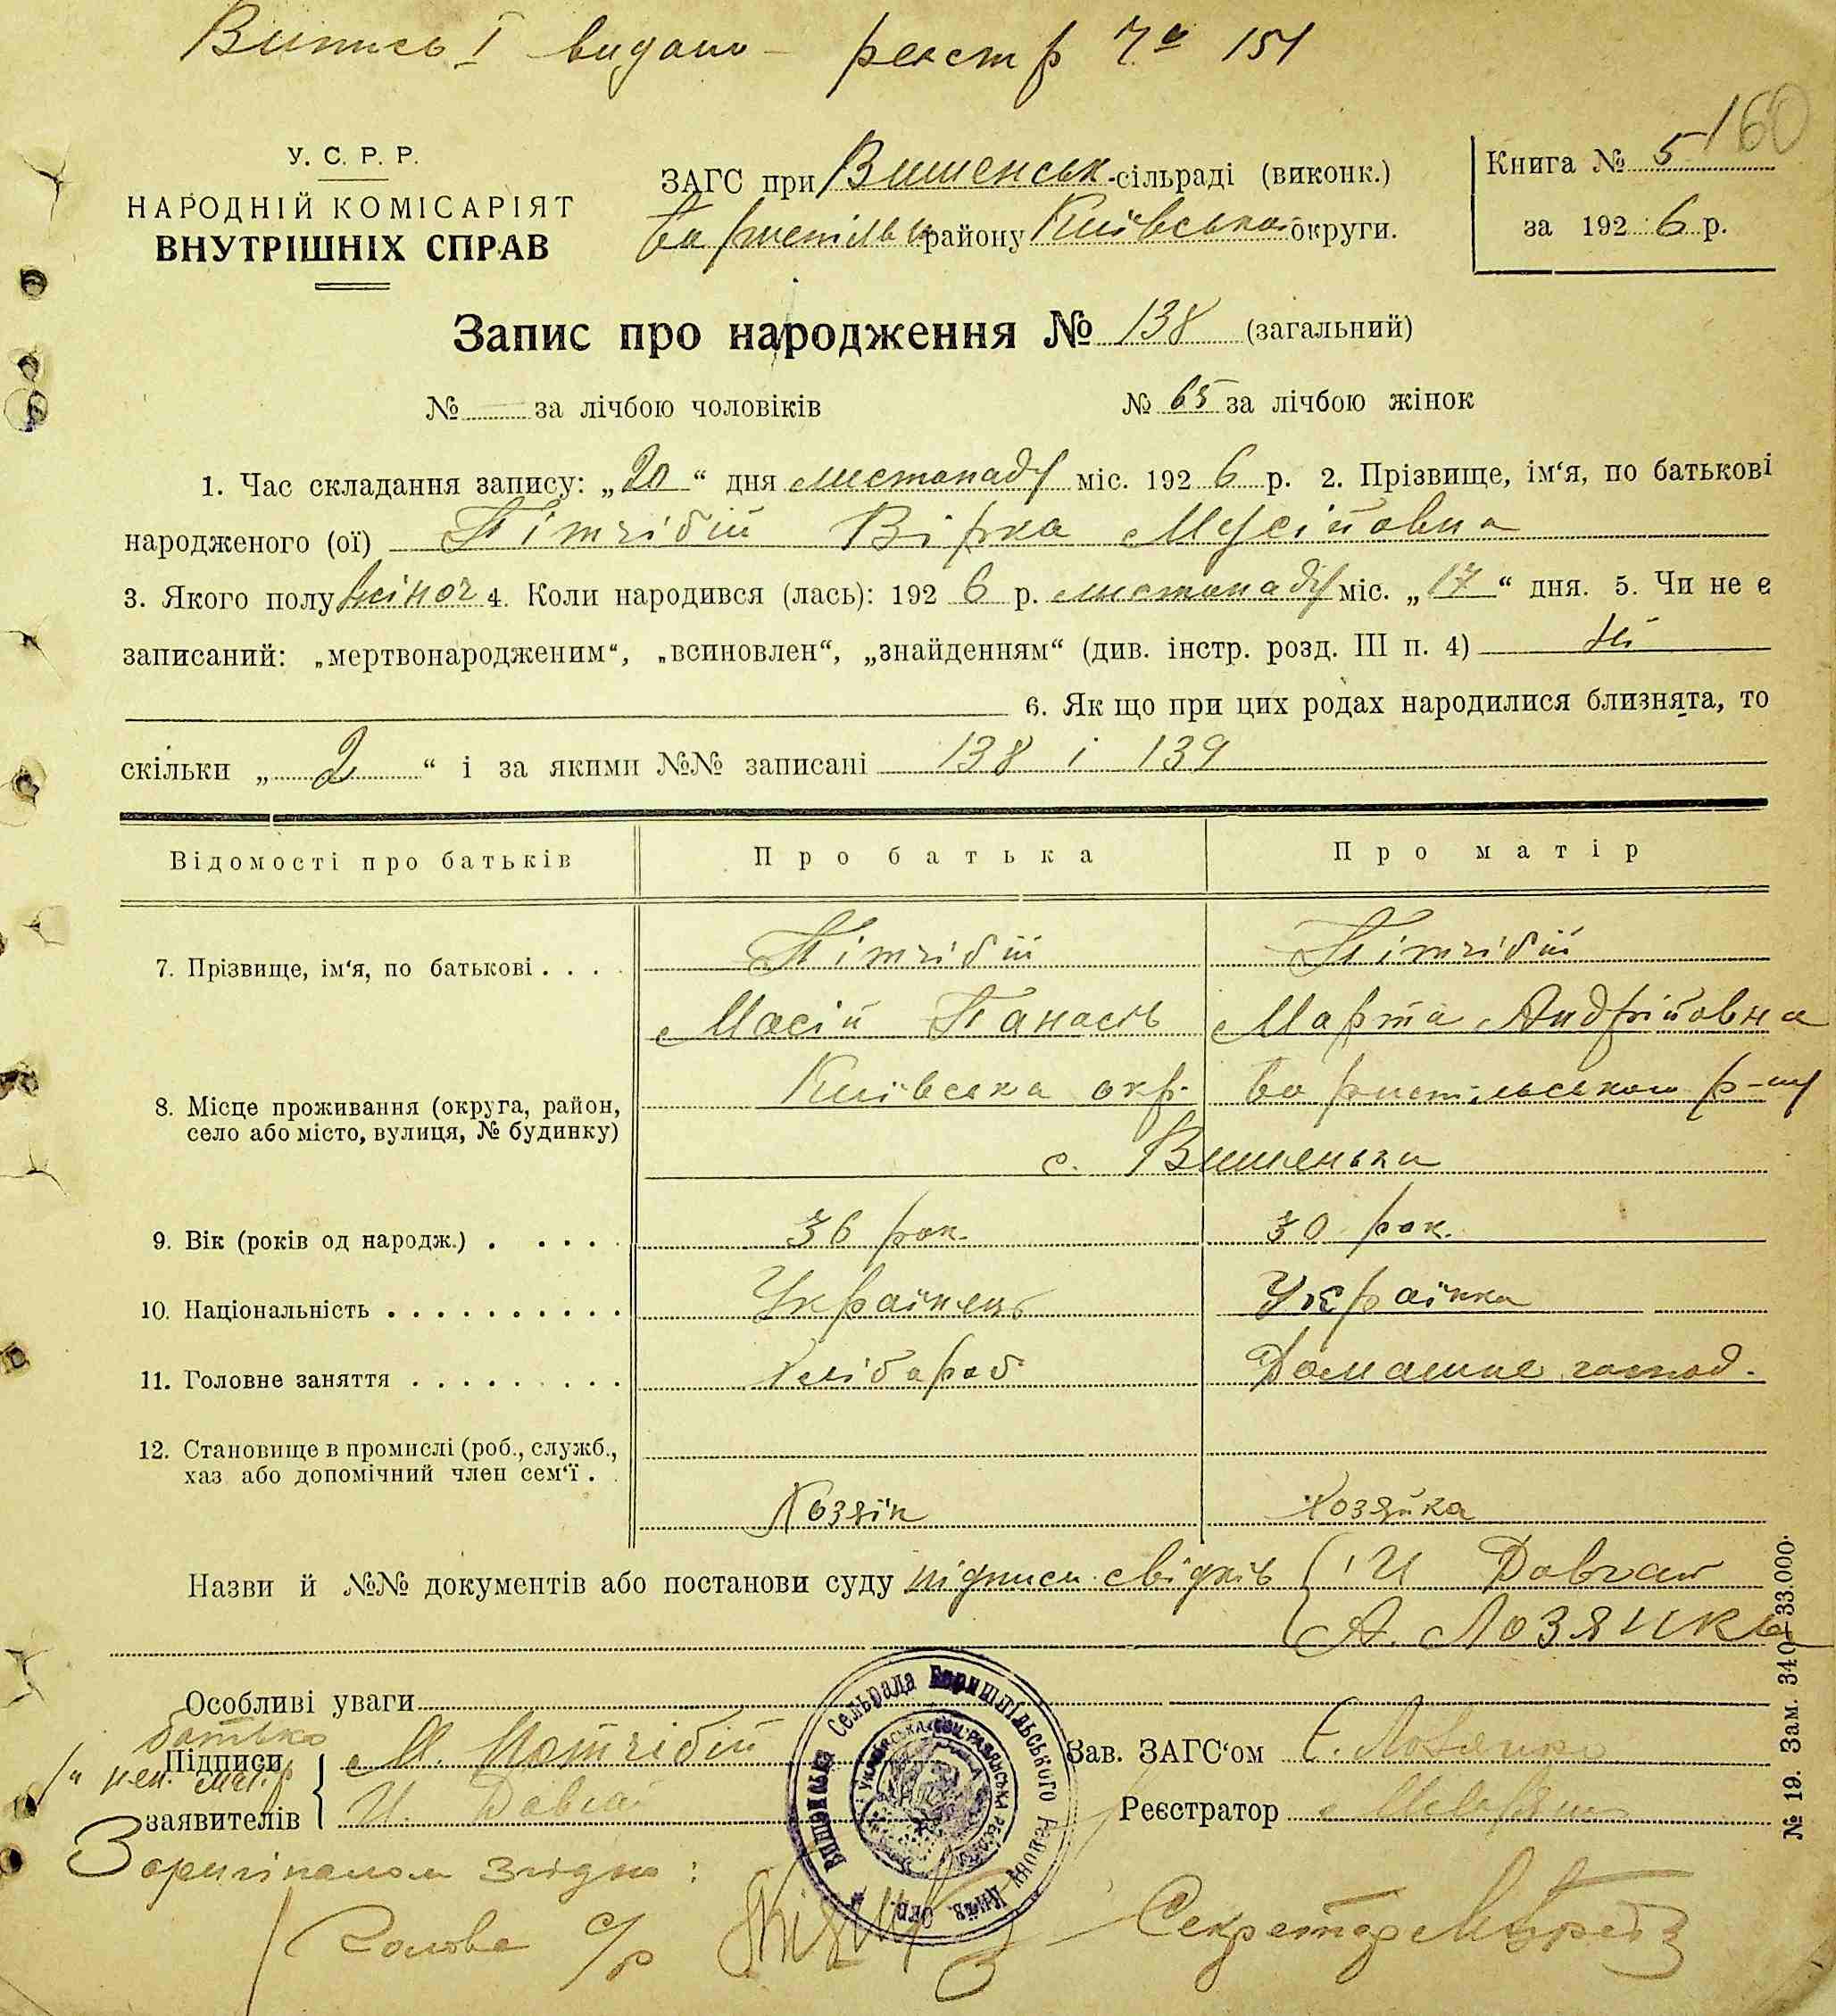 Випись I видано – реєстр № 151
160
У. С. Р. Р.
НАРОДНІЙ КОМІСАРІЯТ
ВНУТРІШНІХ СПРАВ
ЗАГС при Вишенськ-сільраді (виконк.)
району Київської округи.
Книга № 5
за 1926 р.
Запис про народження № 138 (загальний)
№ — за лічбою чоловіків № 65 за лічбою жінок
1. Час складання запису: „20“ дня листопаду міс. 1926 р. 2. Прізвище, ім‘я, по батькові
народженого (ої) Пітчібій Вірка Мусійовна
3. Якого полу жіноч 4. Коли народився (лась): 1926 р. листопаду міс. „17“ дня. 5. Чи не є
записаний: „мертвонародженим“, „всиновлен“, „знайденням“ (див. інстр. розд. III п. 4) Ні
6. Як що при цих родах народилися близнята, то
скільки „2“ і за якими №№ записані 138 і 139
Відомості про батьків Про батька Про матір
7. Прізвище, ім‘я, по батькові . . . . Пітчібій Пітчібій
Мосій Панасів Марта Андрійовна
8. Місце проживання (округа, район, Київська окр. Бориспільського р-ну
село або місто, вулиця, № будинку) с. Вишеньки
9. Вік (років од народж.) . . . . . 36 рок. 30 рок.
10. Національність . . . . . . . . . . Українець Українка
11. Головне заняття . . . . . . . . . Хлібароб Домашне господ.
12. Становище в промислі (роб., служб.,
хаз або допомічний член сем‘ї . .
Хозяін Хозяйка
Назви й №№ документів або постанови суду підписи свідків { И Довгаль
А. Лозянко
Особливі уваги
батько
Підписи М. Потчібій Зав. ЗАГС‘ом
заявителів И. Реєстратор
З оригіналом згідно:
Голова с/р Секретар
Сельрада Бориспільського Району Київ. окр.
№ 19. Зам. 340—33.000.